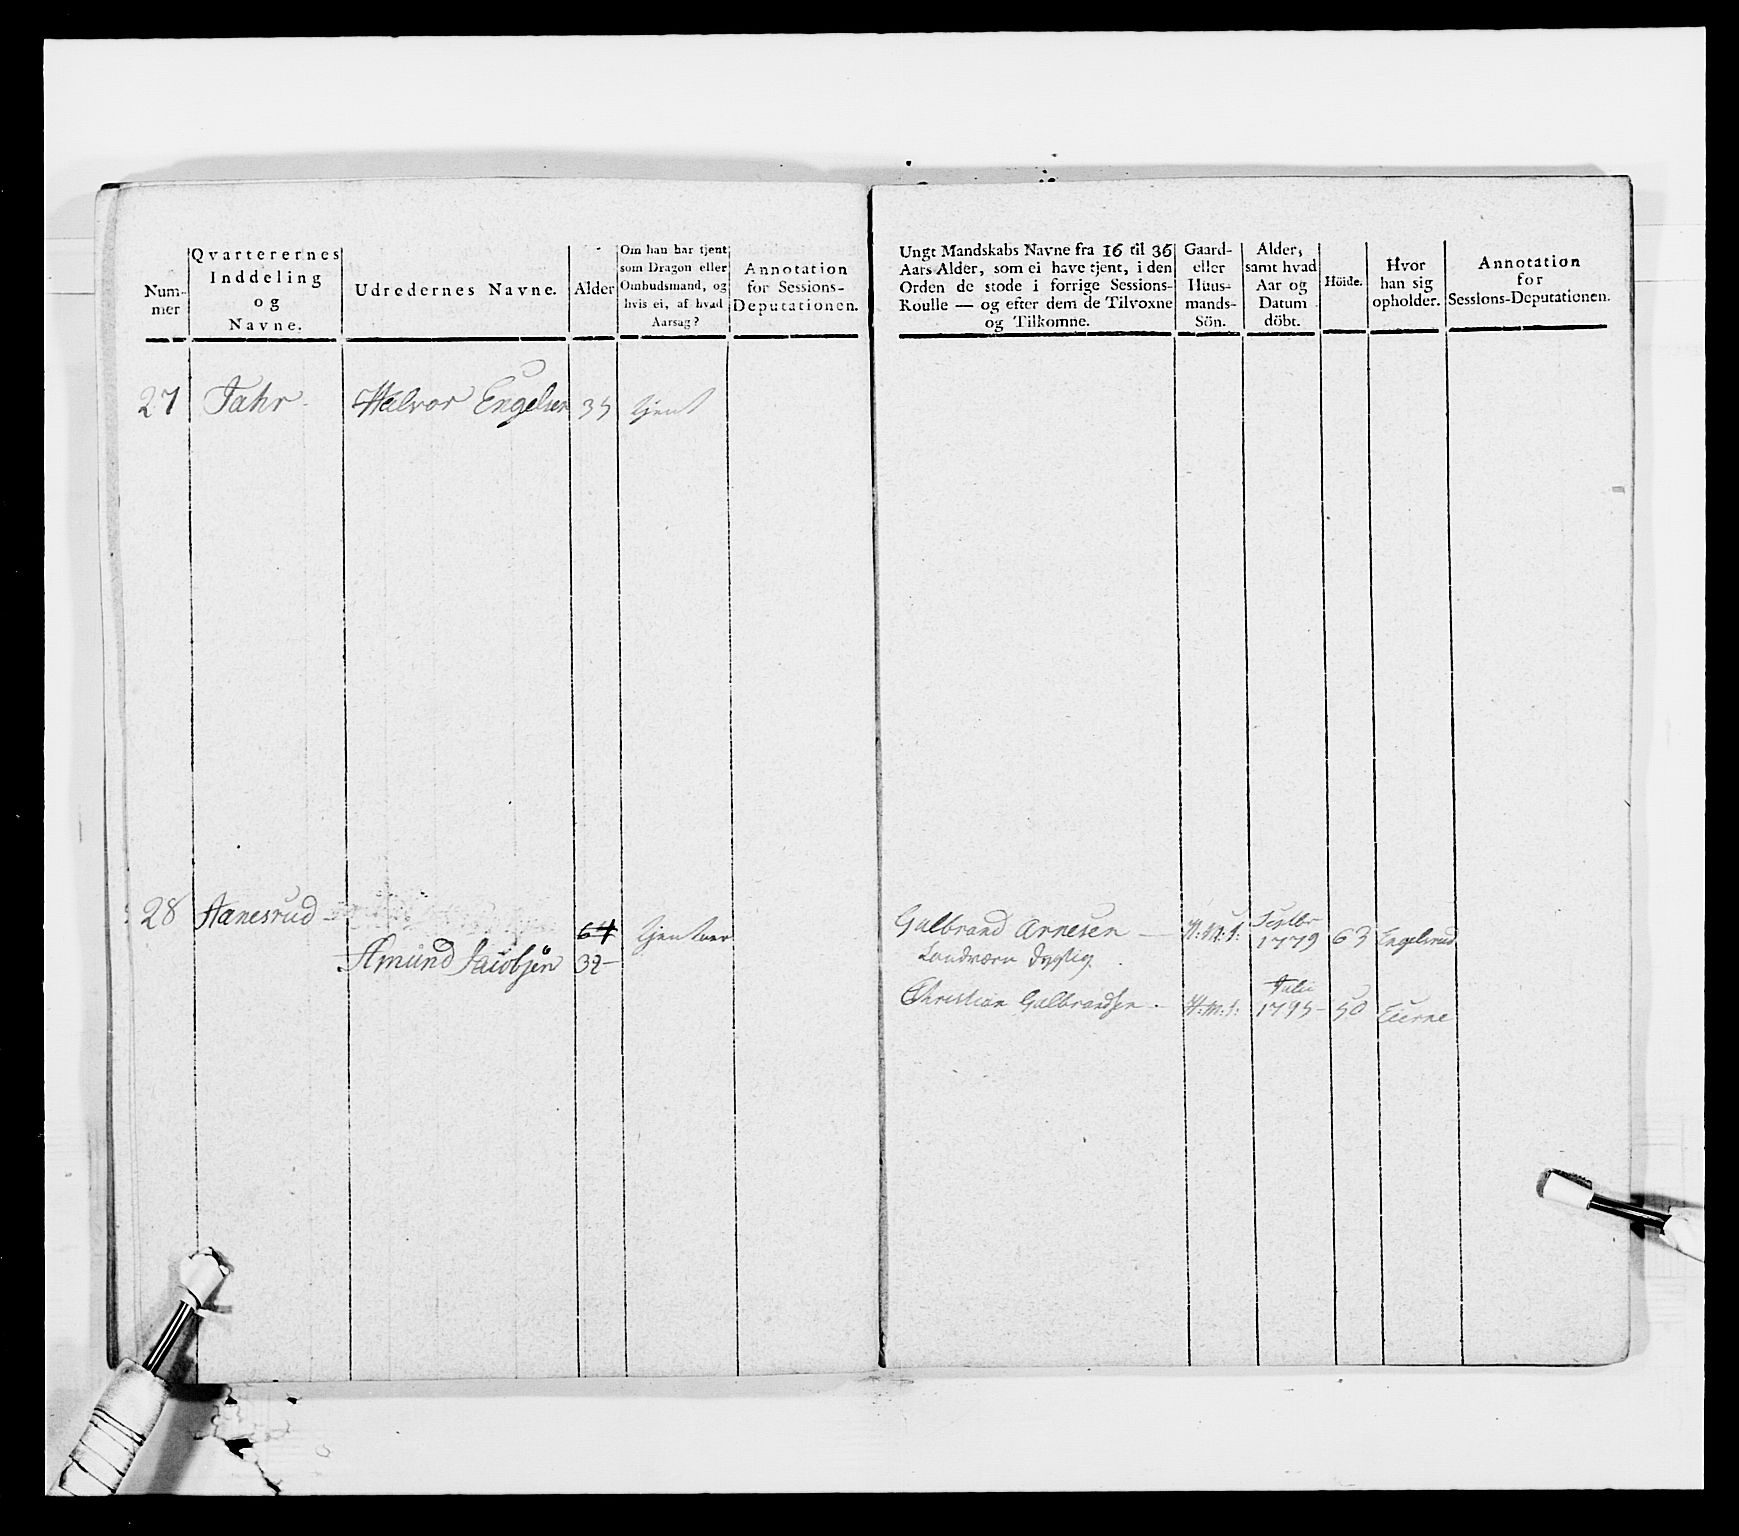 Num-
mer
Qvarterernes
Inddeling
og
Navne.
Udredernes Navne.
Alder
Om han har tjent
som Dragon eller
Ombudsmand, og
hvis ei, af hvad
Aarsag?
Annotation
for Sessions-
Deputationen.
Ungt Mandskabs Navne fra 16 til 36
Aars Alder, som ei have tjent, i den
Orden de stode i forrige Sessions-
Roulle — og efter dem de Tilvoxne
og Tilkomne.
Gaard-
eller
Huus-
mands-
Sön.
Alder,
samt hvad
Aar og
Datum
döbt.
Höide.
Hvor
han sig
opholder.
Annotation
for
Sessions-Deputationen.
27 Fahr Halvor Engelsen 35 tjent
28 Hanesrud
64 tjent
Amund Jacobsen 32-
Gulbrand Arnesen — H:M:S: Septbr 1779 63 Engelsrud
Landværn dygtig
Christian Gulbrandsen - H:M:S: Julii 1795- 50 Eierne